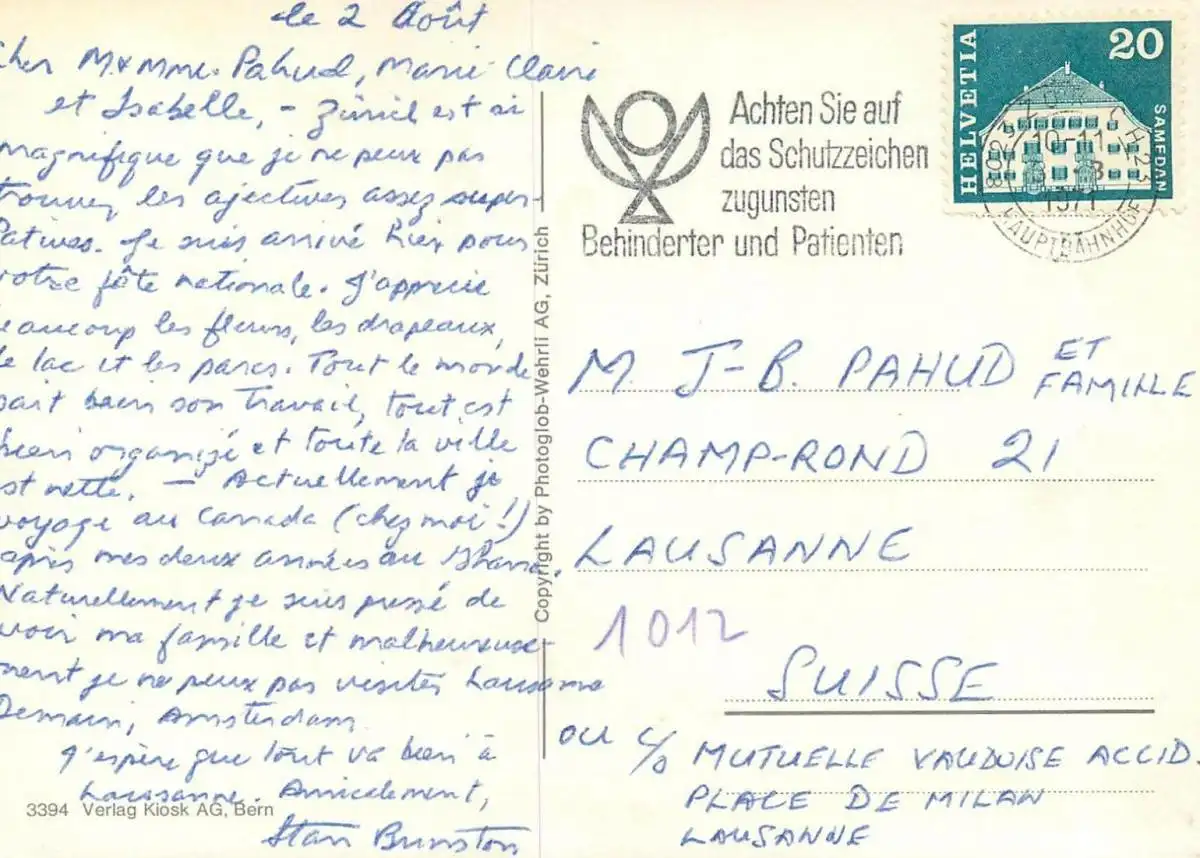 le 2 Août
Cher M & Mme. Pahud, Marie-Claire
et Isabelle, - Zürich est si
magnifique que je ne peux pas
trouver les ajectives assez super-
latives. Je suis arrivé hier pour
votre fête nationale. J'apprecie
beaucoup les fleurs, les drapeaux,
le lac et les parcs. Tout le monde
fait bien son travail, tout est
bien organizé et toute la ville
est nette. - Actuellement je
voyage au Canada (chez moi!)
après mes deux années au Ghana.
Naturellement je suis pressé de
voir ma famille et malheureuse-
ment je ne peux pas visiter Lausanne
Demain, Amsterdam.
J'espère que tout va bien à
Lausanne. Amicalement,
Stan Brunston
3394 Verlag Kiosk AG, Bern
Copyright by Photoglob-Wehrli AG, Zürich
Achten Sie auf
das Schutzzeichen
zugunsten
Behinderter und Patienten
HELVETIA
20
SAMEDAN
8023 ZÜRICH 23
10-11
1971
HAUPTBAHNHOF
M. J-B. PAHUD ET
FAMILLE
CHAMP-ROND 21
LAUSANNE
1012
SUISSE
OU C/O MUTUELLE VAUDOISE ACCID.
PLACE DE MILAN
LAUSANNE